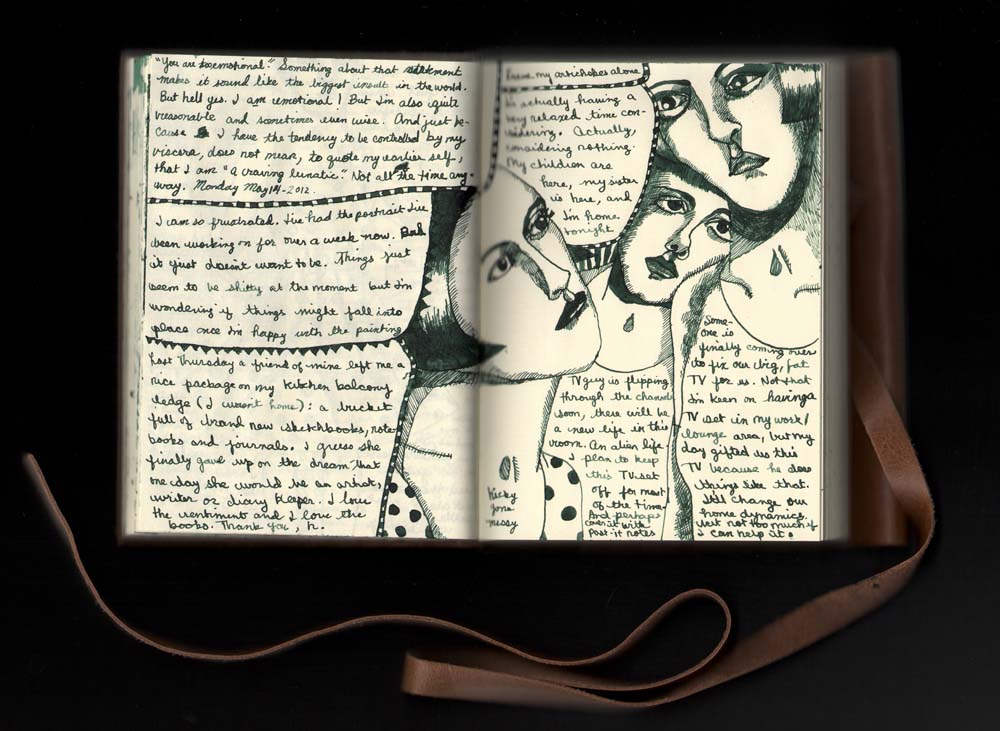 "You are too emotional." Something about that statement
makes it sound like the biggest insult in the world.
But hell yes. I am emotional! But I'm also quite
reasonable and sometimes even wise. And just be-
cause I have the tendency to be controlled by my
viscera, does not mean, to quote my earlier self,
that I am "a craving lunatic." Not all the time any-
way. Monday May 14-2012.
I am so frustrated. I've had the portrait I've
been working on for over a week now. Bah
it just doesnt want to be. Things just
seem to be shitty at the moment but I'm
wondering if things might fall into
place once I'm happy with the painting
Last Thursday a friend of mine left me a
nice package on my kitchen balcony
ledge (I wasn't home): a bucket
full of brand new sketchbooks, note-
books and journals. I guess she
finally gave up on the dream that
one day she would be an artist,
writer or diary keeper. I love
the sentiment and I love the
books. Thank you, h.
Leave my artichokes alone
I'm actually having a
very relaxed time con-
sidering. Actually,
considering nothing.
My children are
here, my sister
is here, and
I'm home
tonight.
TV guy is flipping
through the channels
soon, there will be
a new life in this
room. An alien life
I plan to keep
this TV-set
off for most
of the time.
And perhaps
cover it with
Post-it notes
Hickey
gone
missy
Some-
one is
finally coming over
to fix our big, fat
TV for us. Not that
I'm keen on having a
TV set in my work/
lounge area, but my
day gifted us this
TV because he does
things like that.
Itll change our
home dynamics.
but not too much if
I can help it.